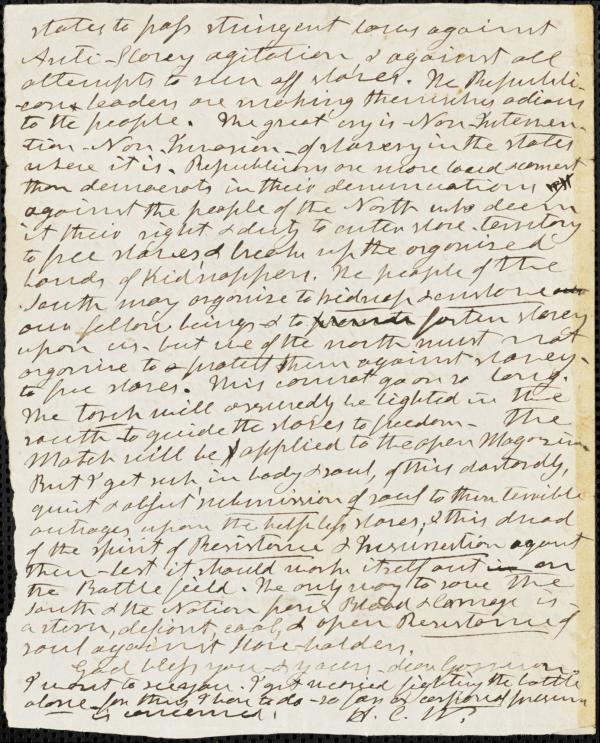 states to pass stringent laws against
Anti-Slavery agitation & against all
attempts to run off slaves. The Republi-
can leaders are making themselves odious
to the people. The great cry is Non-Interven-
tion – Non-Invasion – of slavery in the states
where it is. Republicans are more loud & earnest
than democrats in their denunciations
against the people of the North who deem
it their right & duty to enter slave-territory
to free slaves & break up the organised
bands of Kidnappers. The people of the
South may organise to kidnap & enslave
our fellow beings & to fasten slavery
upon us – but we of the north must not
organise to protect them against slavery –
to free slaves. This cannot go on so long.
The torch will assuredly be lighted in the
south – to guide the slaves to freedom – The
Match will be applied to the open Magazine
But I get sick, in body & soul, of this dastardly,
quiet & abject submission of soul to these terrible
outrages upon the helpless slaves, & this dread
of the spirit of Resistance & Insurrection against
them – lest it should work itself out on
the Battle field. The only way to save the
South & the Nation from Blood & Carnage is –
a stern, defiant, cool, & open Resistance of
soul against slave-holders.
God bless you & yours – dear Garrison
I want to see you. I get wearied fighting the battle
alone – for thus I have to do – so far as corporeal presence
is concerned! H. C. W.